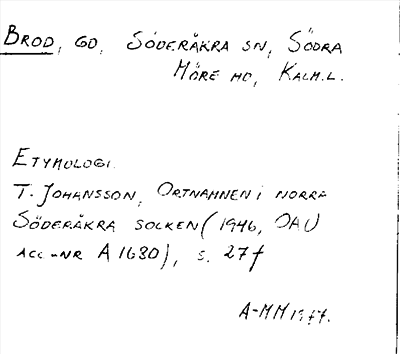 BROD, GD, SÖDERÅKRA SN, SÖDRA
MÖRE HD, KALM.L.
ETYMOLOGI
T. JOHANSSON, ORTNAMNEN I NORRA
SÖDERÅKRA SOCKEN (1946, OAU
ACC-NR A 1680), S. 27f
A-MM 1977.